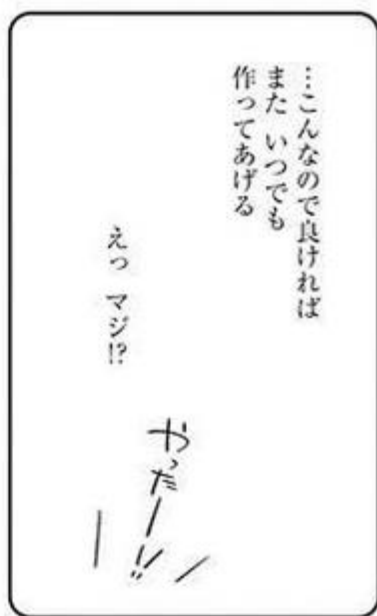 …こんなので良ければ
また いつでも
作ってあげる
えっ マジ!?
やったーー!!